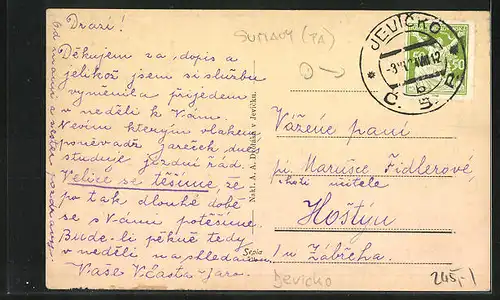 Drazí!
Děkujem za dopis a
jelikož jsem si službu
vyměnila přijedem
v neděli k Vám.
Nevím kterým vlakem
poněvadž Jareček dnes
studuje jízdní řád.
Velice se těšíme, že
po tak dlouhé době
se s Vámi potěšíme.
Bude-li pěkně tedy
v neděli na shledanou
Vaše Vlasta Jaro.
Od mami a sester pozdravy.
Nakl. A. A. Drbal v Jevíčku.
Sepia
SUMAVY (PA)
JEVÍČKO
Č. S. P.
50
Vážené paní
pí. Maruše Fidlerové,
choti učitele
Hoštýn
/u Zábřeha.
Jevicko
245,-/